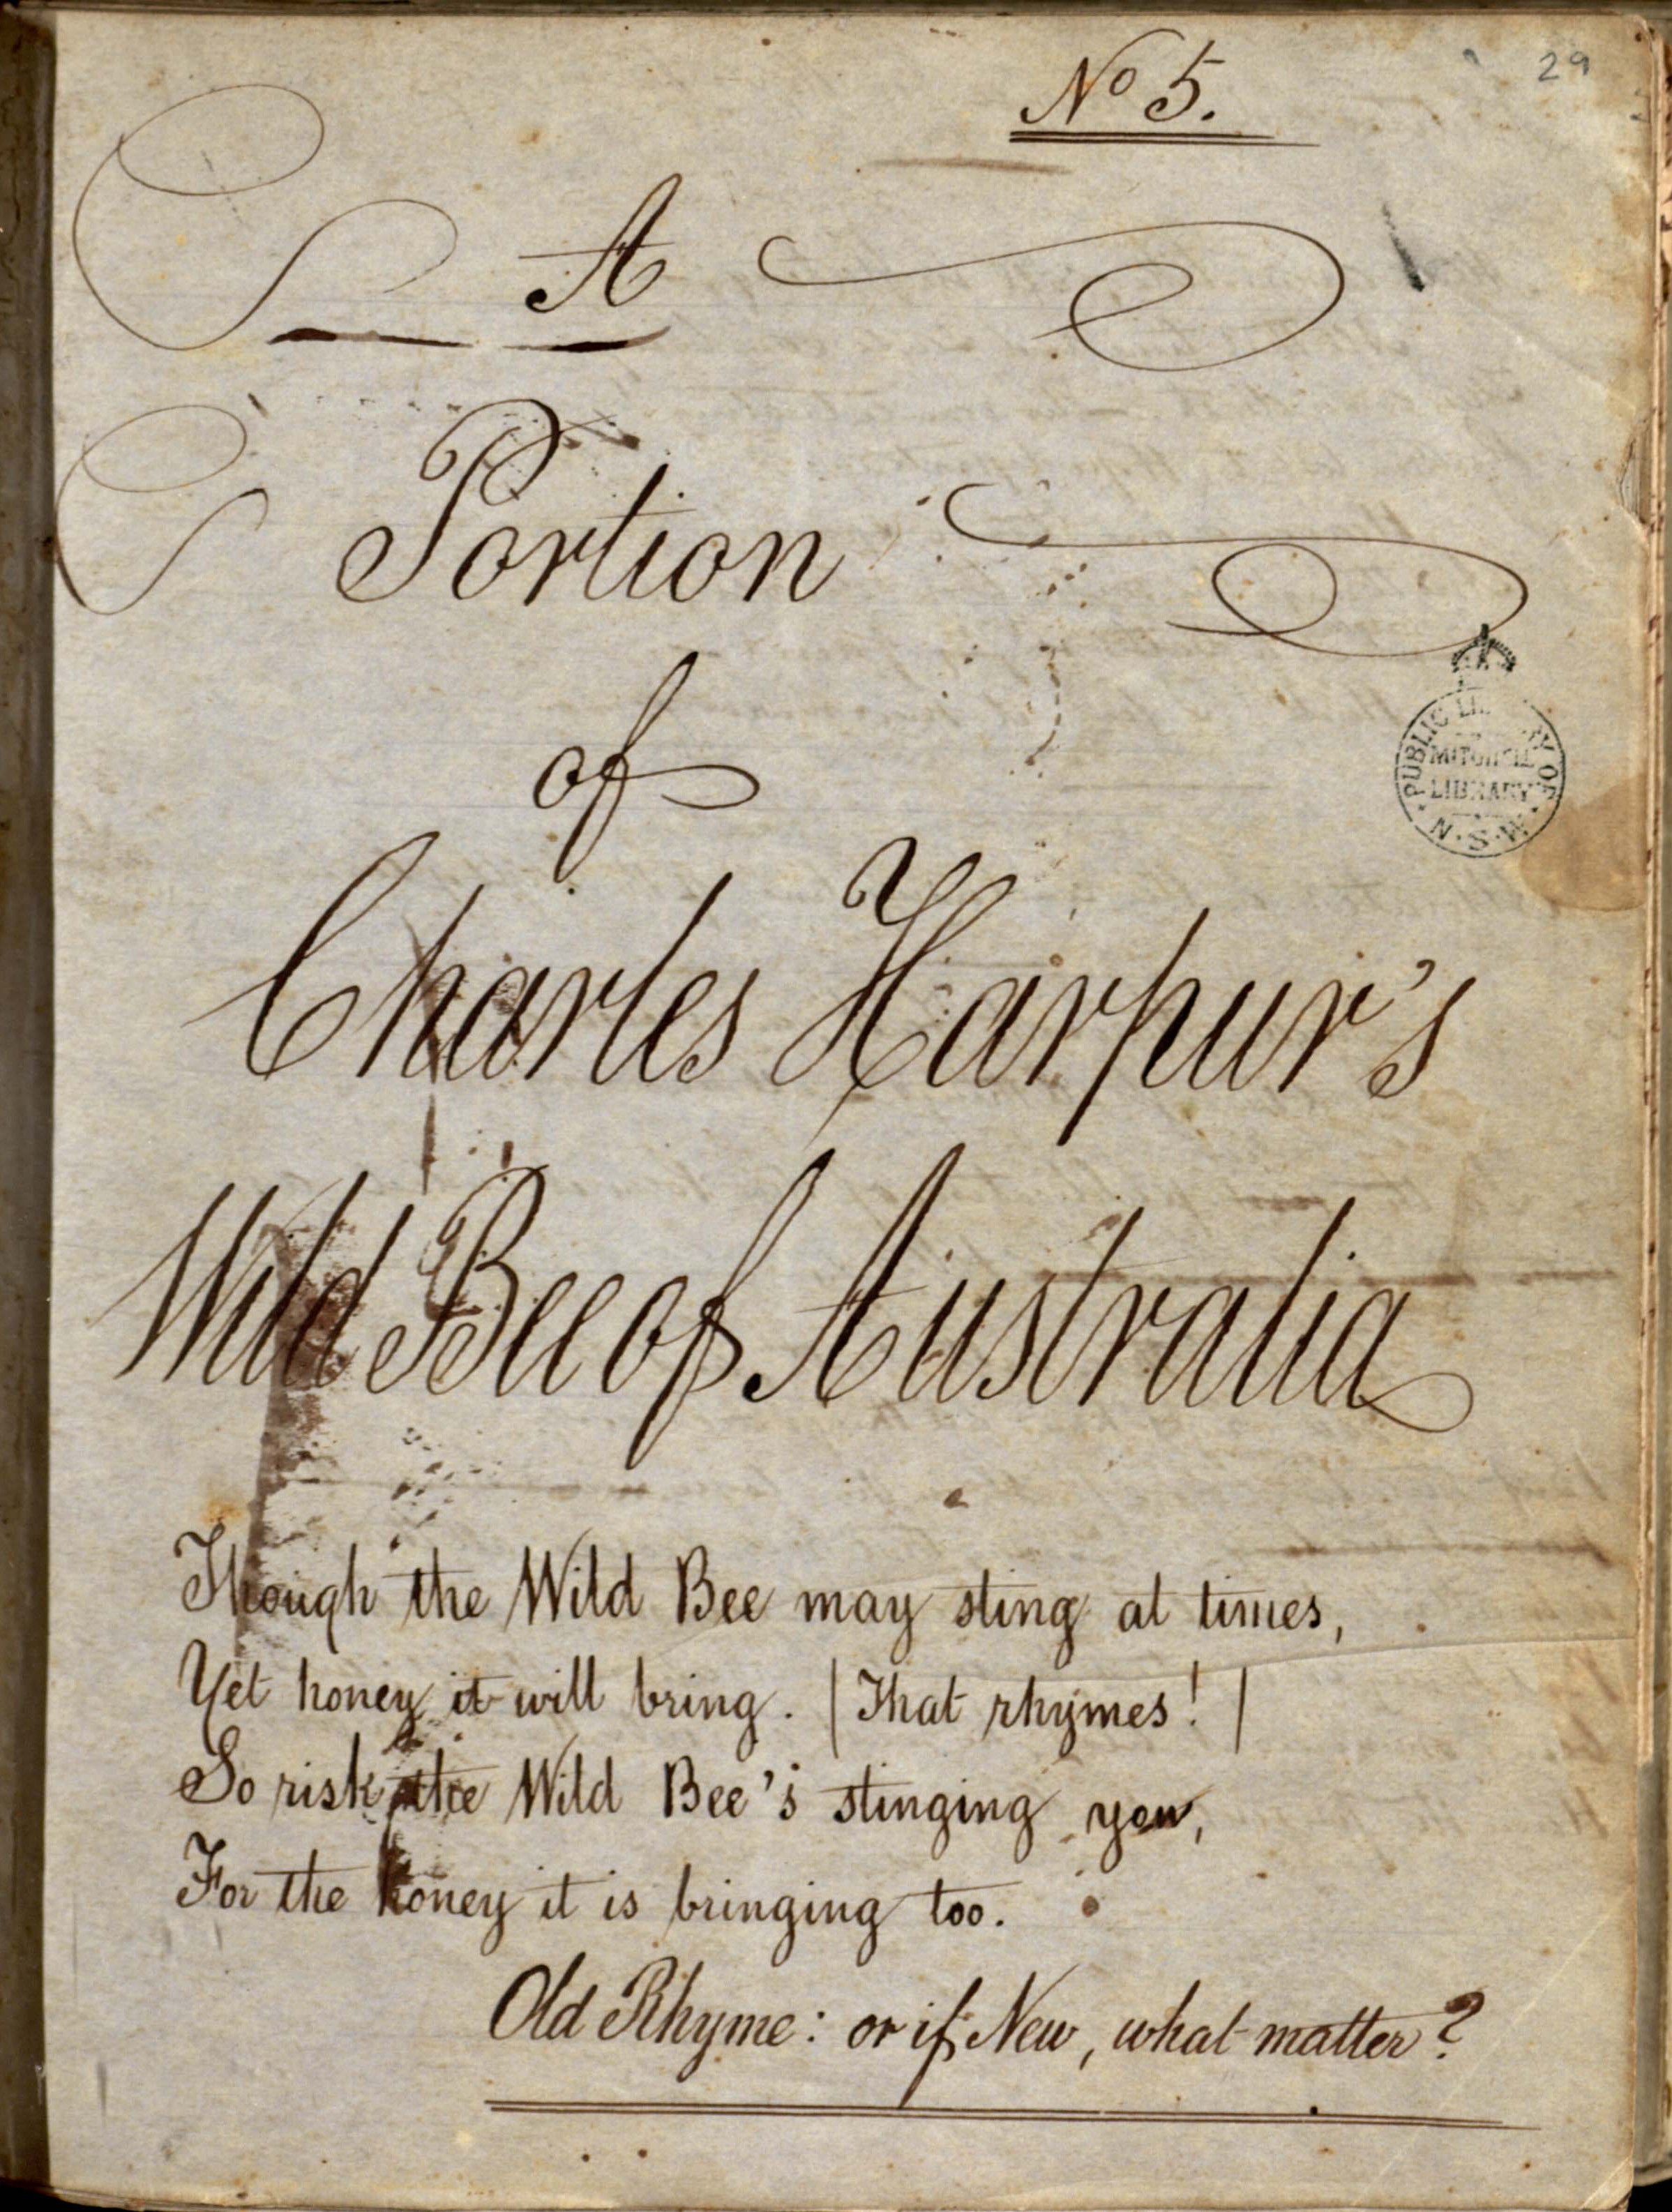 No 5.
29
A
Portion
of
Charles Harpur's
Wild Bee of Australia
PUBLIC LIBRARY OF
MITCHELL
LIBRARY
N.S.W.
Though the Wild Bee may sting at times,
Yet honey it will bring. (That rhymes!)
So risk the Wild Bee's stinging you,
For the honey it is bringing too.
Old Rhyme: or if New, what matter?